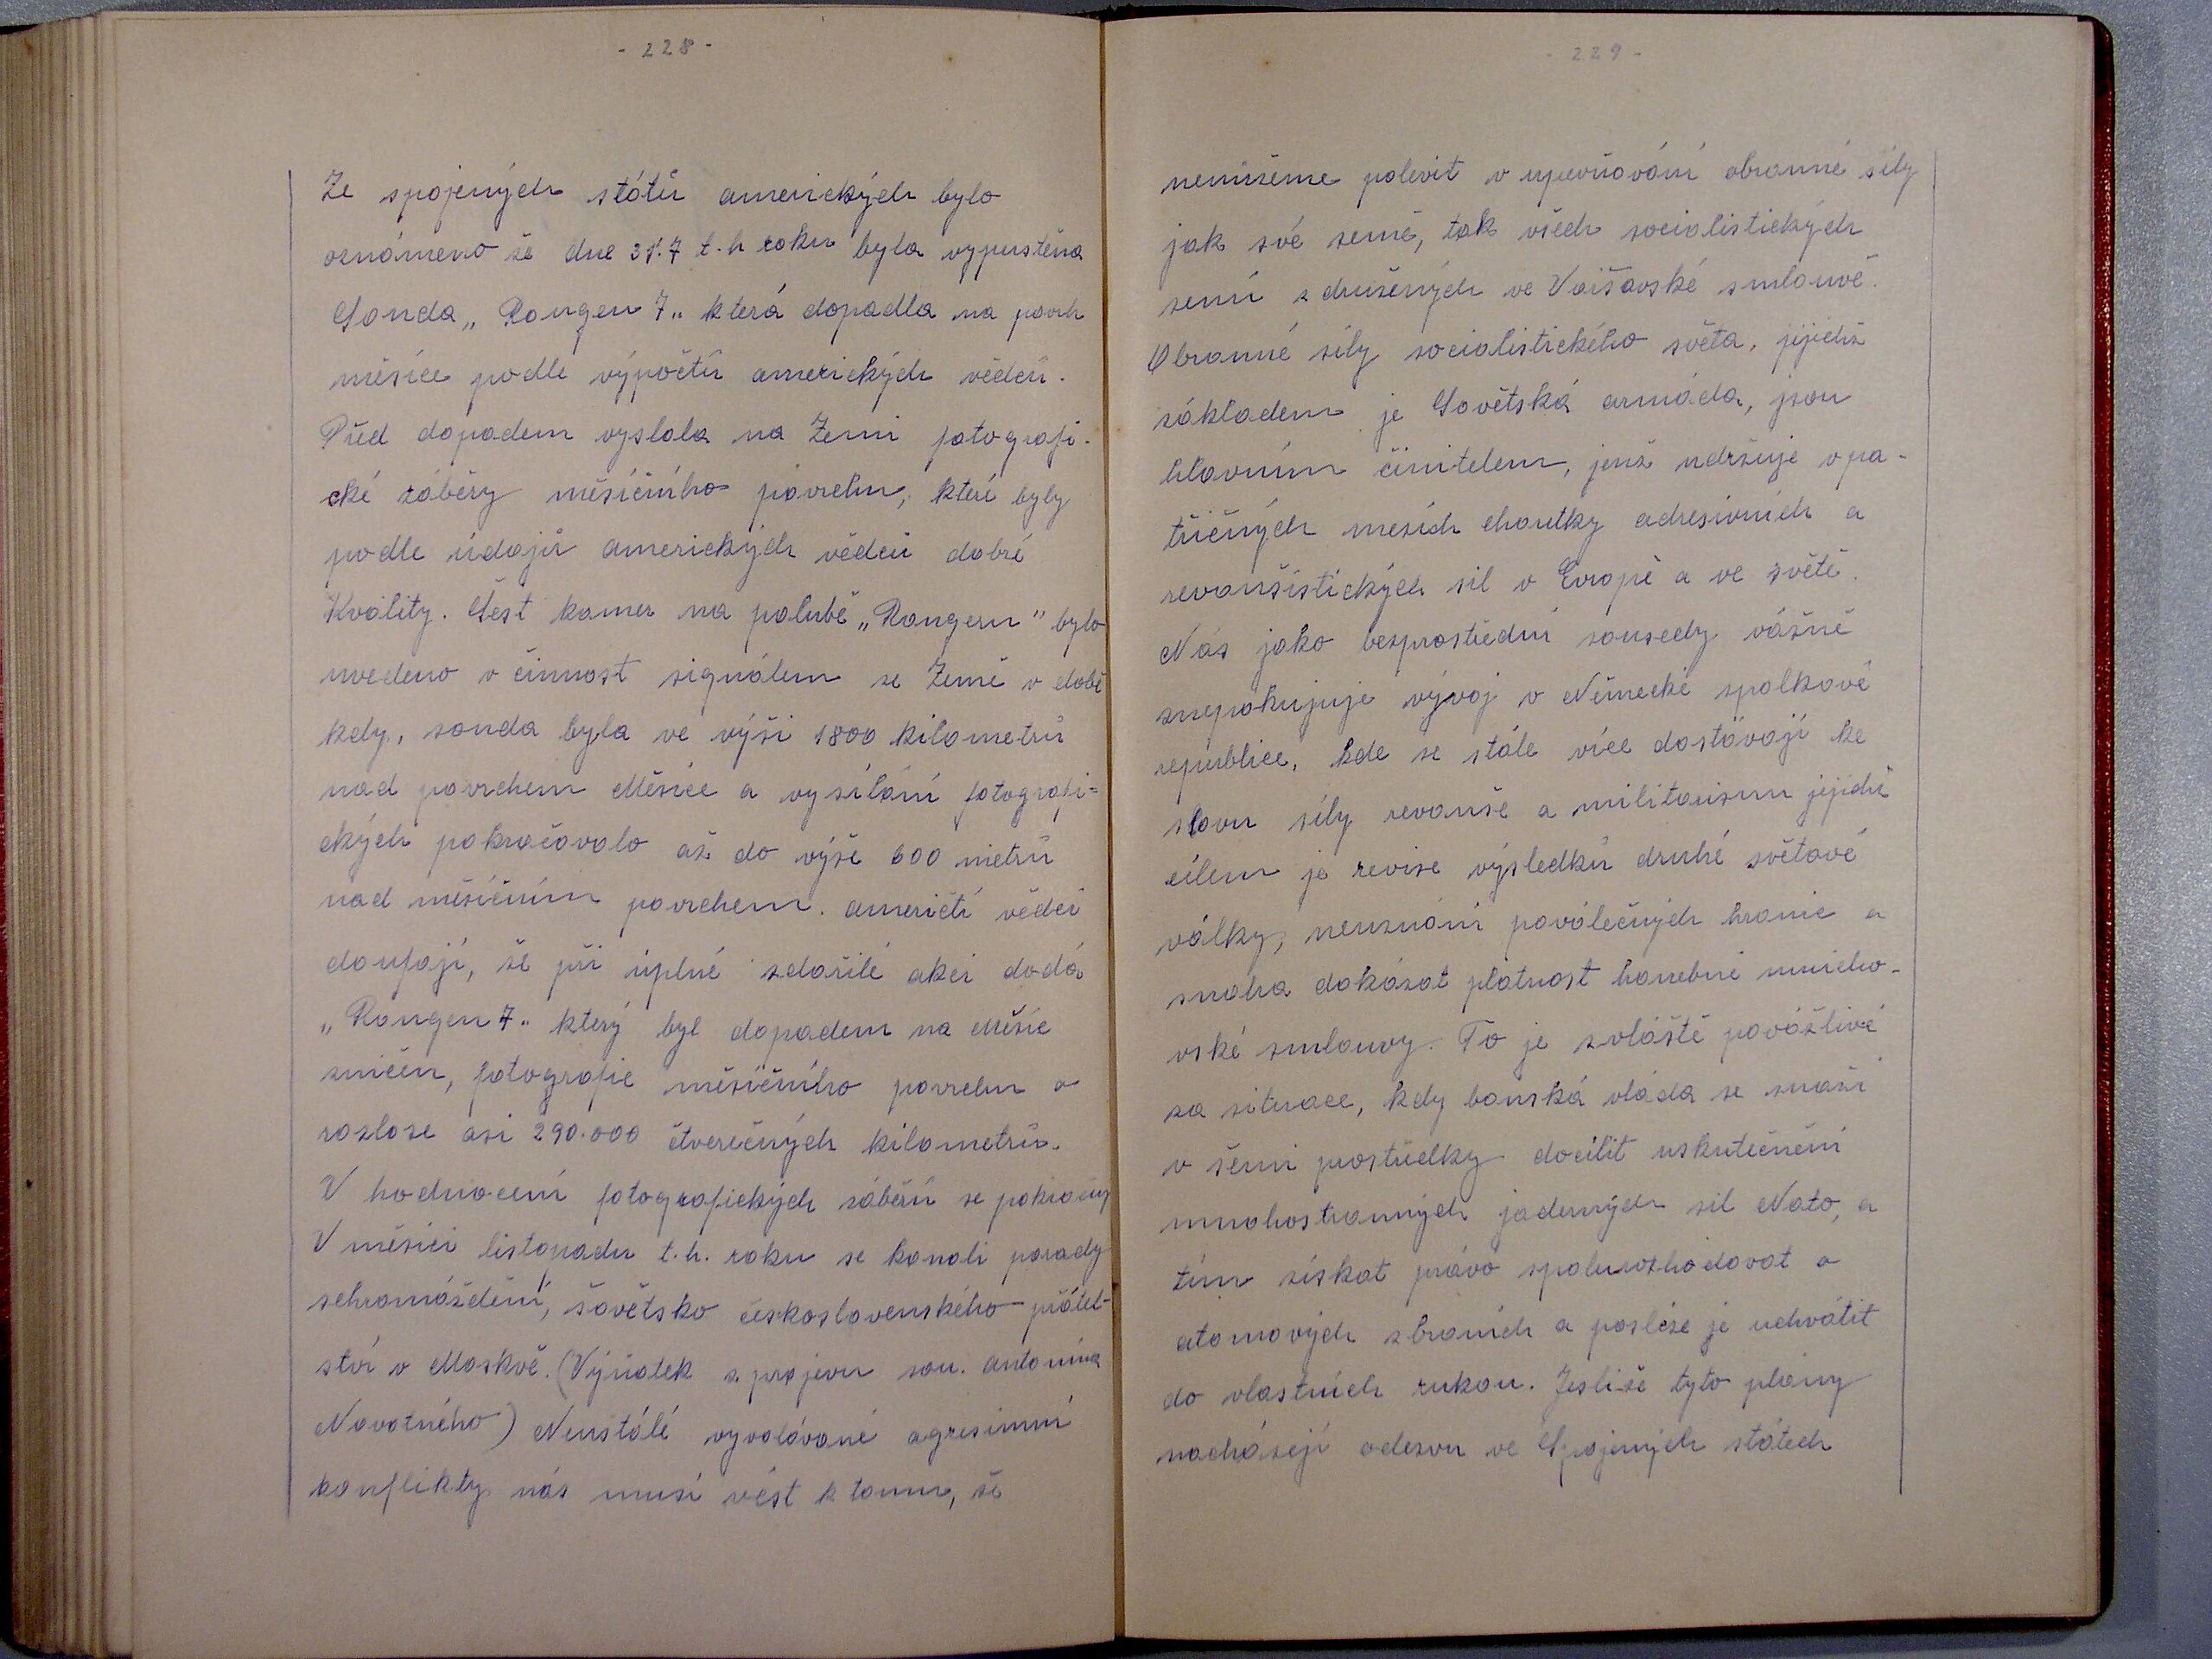 - 228 -
Ze spojených států amerických bylo
oznámeno že dne 31.7 t.h roku byla vypuštěna
Sonda „ Rangen 7„ která dopadla na povrh
měsíce podle výpočtů amerických vědců.
Před dopadem vyslala na Zemi fotografi-
cké záběry měsíčního povrchu, které byly
podle údajů amerických vědců dobré
Kvality. Šest kamer na palubě „Rangeru" bylo
uvedeno v činnost signálem ze Země v době
kdy, sonda byla ve výši 1800 kilometrů
nad povrchem Měsíce a vysílání fotografi=
ckých pokračovalo až do výše 600 metrů
nad měsíčním povrchem. američtí vědci
doufají, že při úplné zdařilé akci dodá
„Rangen 7„ který byl dopadem na Měsíc
zničen, fotografie měsíčního povrchu o
rozloze asi 290.000 čtverečných kilometrů.
V hodnocení fotografických záběrů se pokračuj
V měsíci listopadu t.h. roku se konali porady
schromáždění, šovětsko československého přátel-
ství v Moskvě. (Výňatek z projevu sou. antonína
Novotného) Neustálé vyvolávané agresimní
konflikty nás musí vést k tomu, že
- 229 -
nemůžeme polevit v upevňování obranné síly
jak své země, tak všech socialistických
zemí združených ve Varšavské smlouvě.
Obranné síly socialistického světa, jejichž
základem je Sovětská armáda, jsou
hlavním činitelem, jenž udržuje v pa-
třičných mezích choutky adresivních a
revanšistických sil v Evropě a ve světě.
Nás jako bezprostřední sousedy vážně
znepokujuje vývoj v Německé spolkové
republice, kde se stále více dostávají ke
slovu síly revanše a militarismu jejichž
cílem je revise výsledků druhé světové
války, neuznání poválečných hranic a
snaha dokázat platnost hanebné mnicho-
vské smlouvy. To je zvláště povážlivé
za situace, kdy bonská vláda se snaží
v šemi prostředky docílit uskutečnění
mnohostranných jaderných sil Nato, a
tím získat právo spolurozhodovat o
atomových zbraních a posléze je uchvátit
do vlastních rukou. Jesliže tyto plány
nacházejí odezvu ve Spojených státech